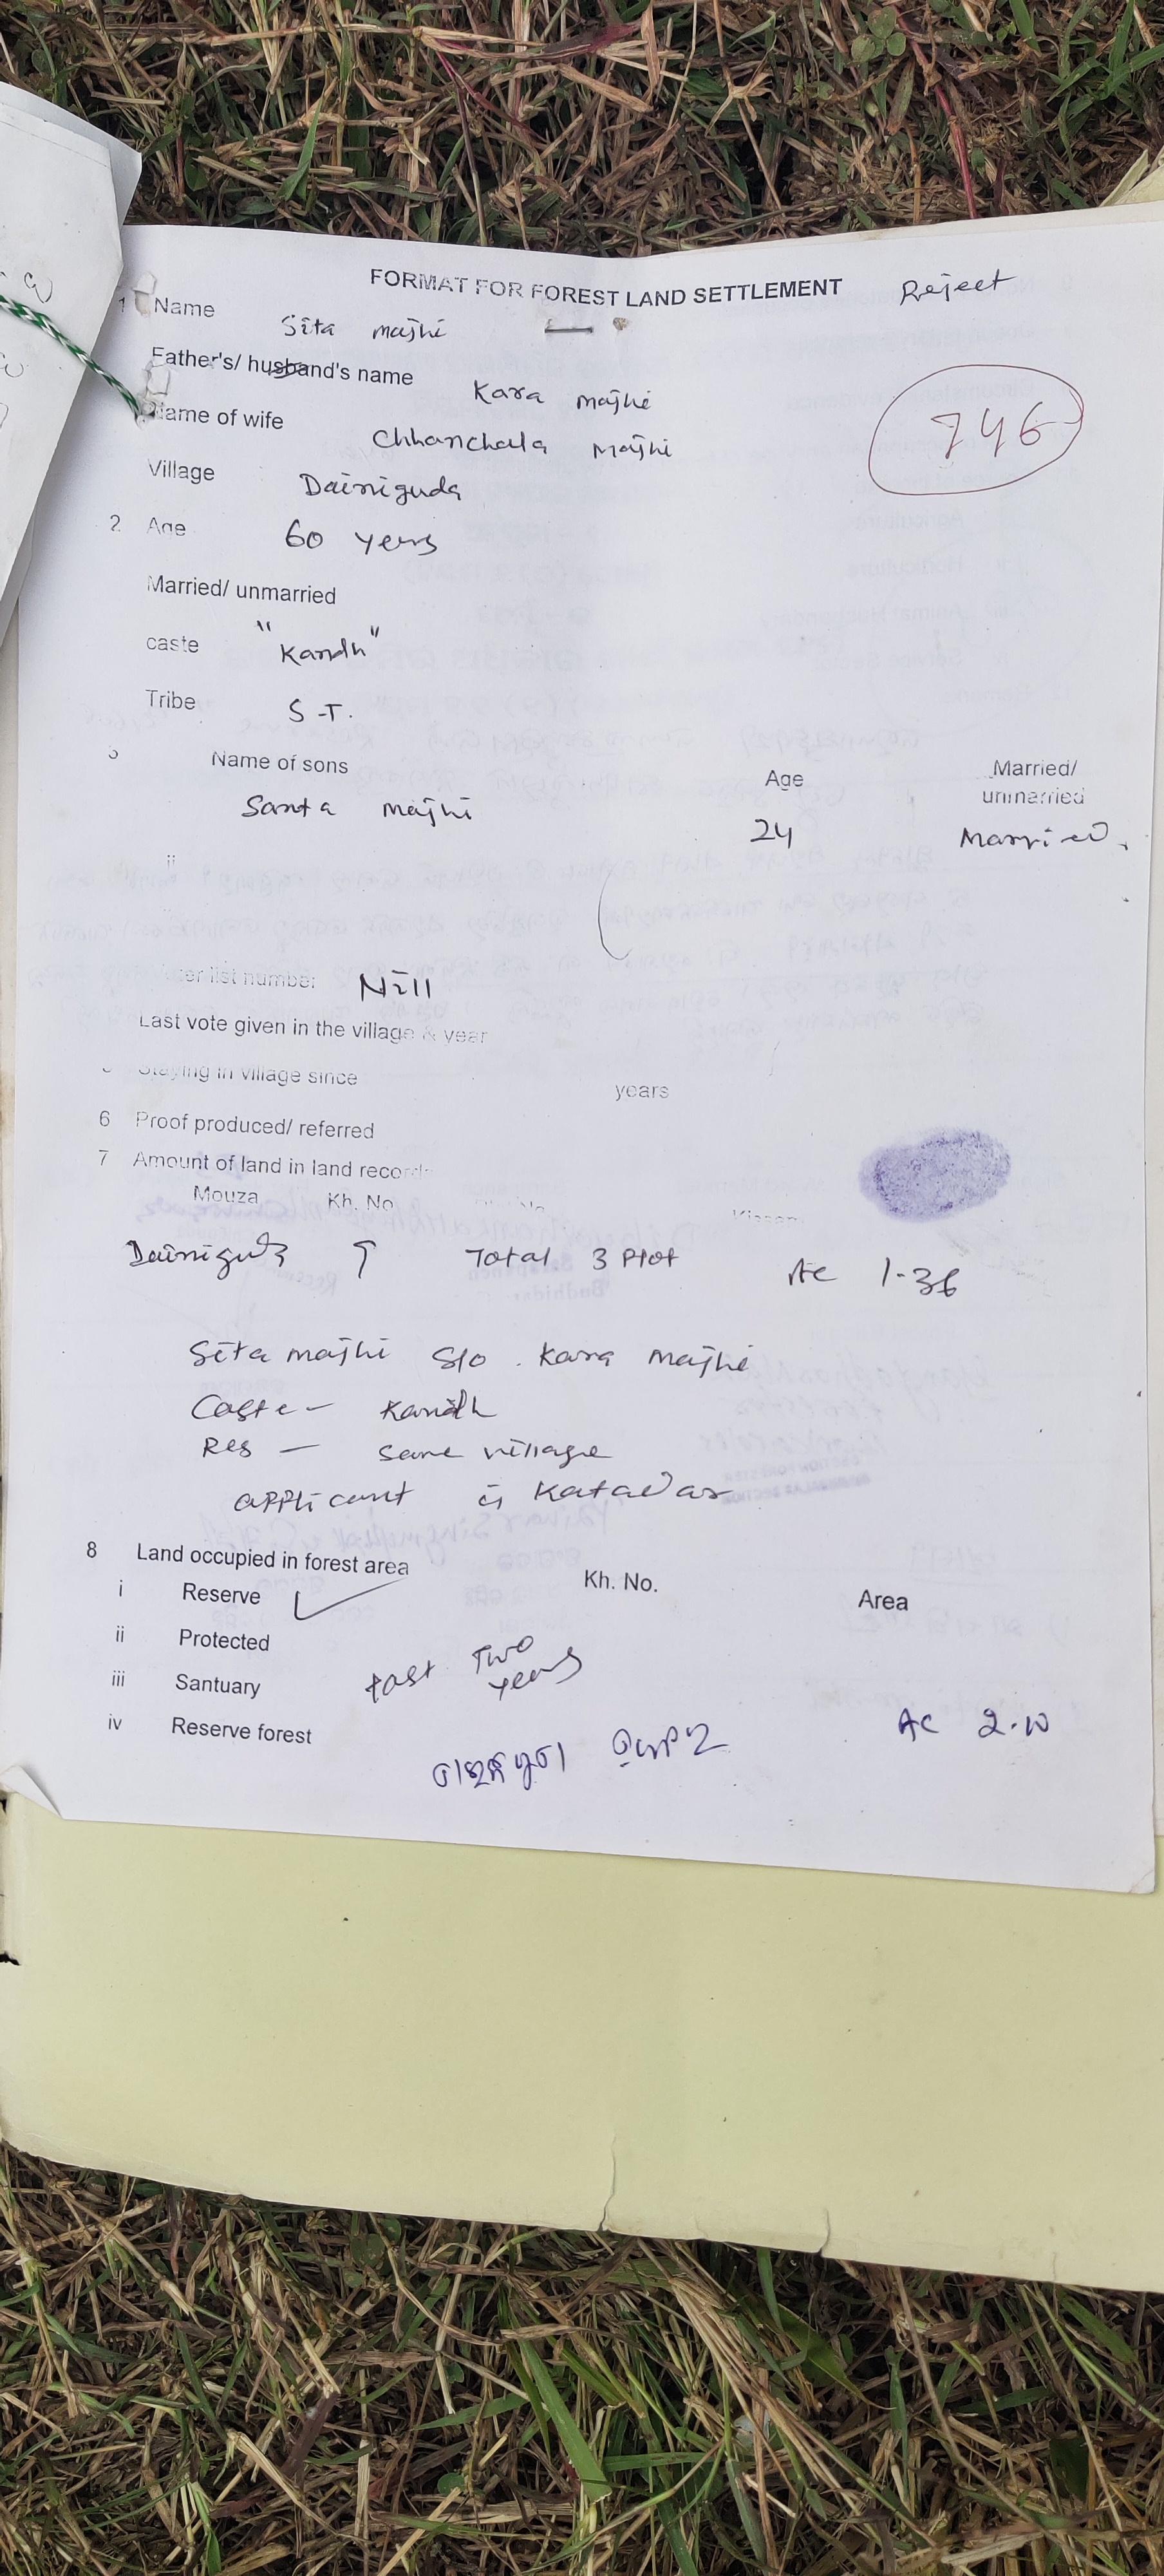 FORMAT FOR FOREST LAND SETTLEMENT Reject
1 Name Sita majhi
Father's/ husband's name Kara majhi
746
Name of wife Chhanchala Majhi
Village Dainiguda
2 Age 60 years
Married/ unmarried
caste "Kandh"
Tribe S.T.
3 Name of sons Age Married/ unmarried
Santa majhi 24 Married.
ii
list number Nill
Last vote given in the village & year
Staying in village since years
6 Proof produced/ referred
7 Amount of land in land records
Mouza Kh. No Kissam
Dainiguda 9 Total 3 Plot Ac 1-36
Sita majhi S/o. Kara majhi
Caste - Kandh
Res - Same village
applicant is Katadar
8 Land occupied in forest area Kh. No. Area
i Reserve
ii Protected
iii Santuary
Last Two years
iv Reserve forest
AC 2.10